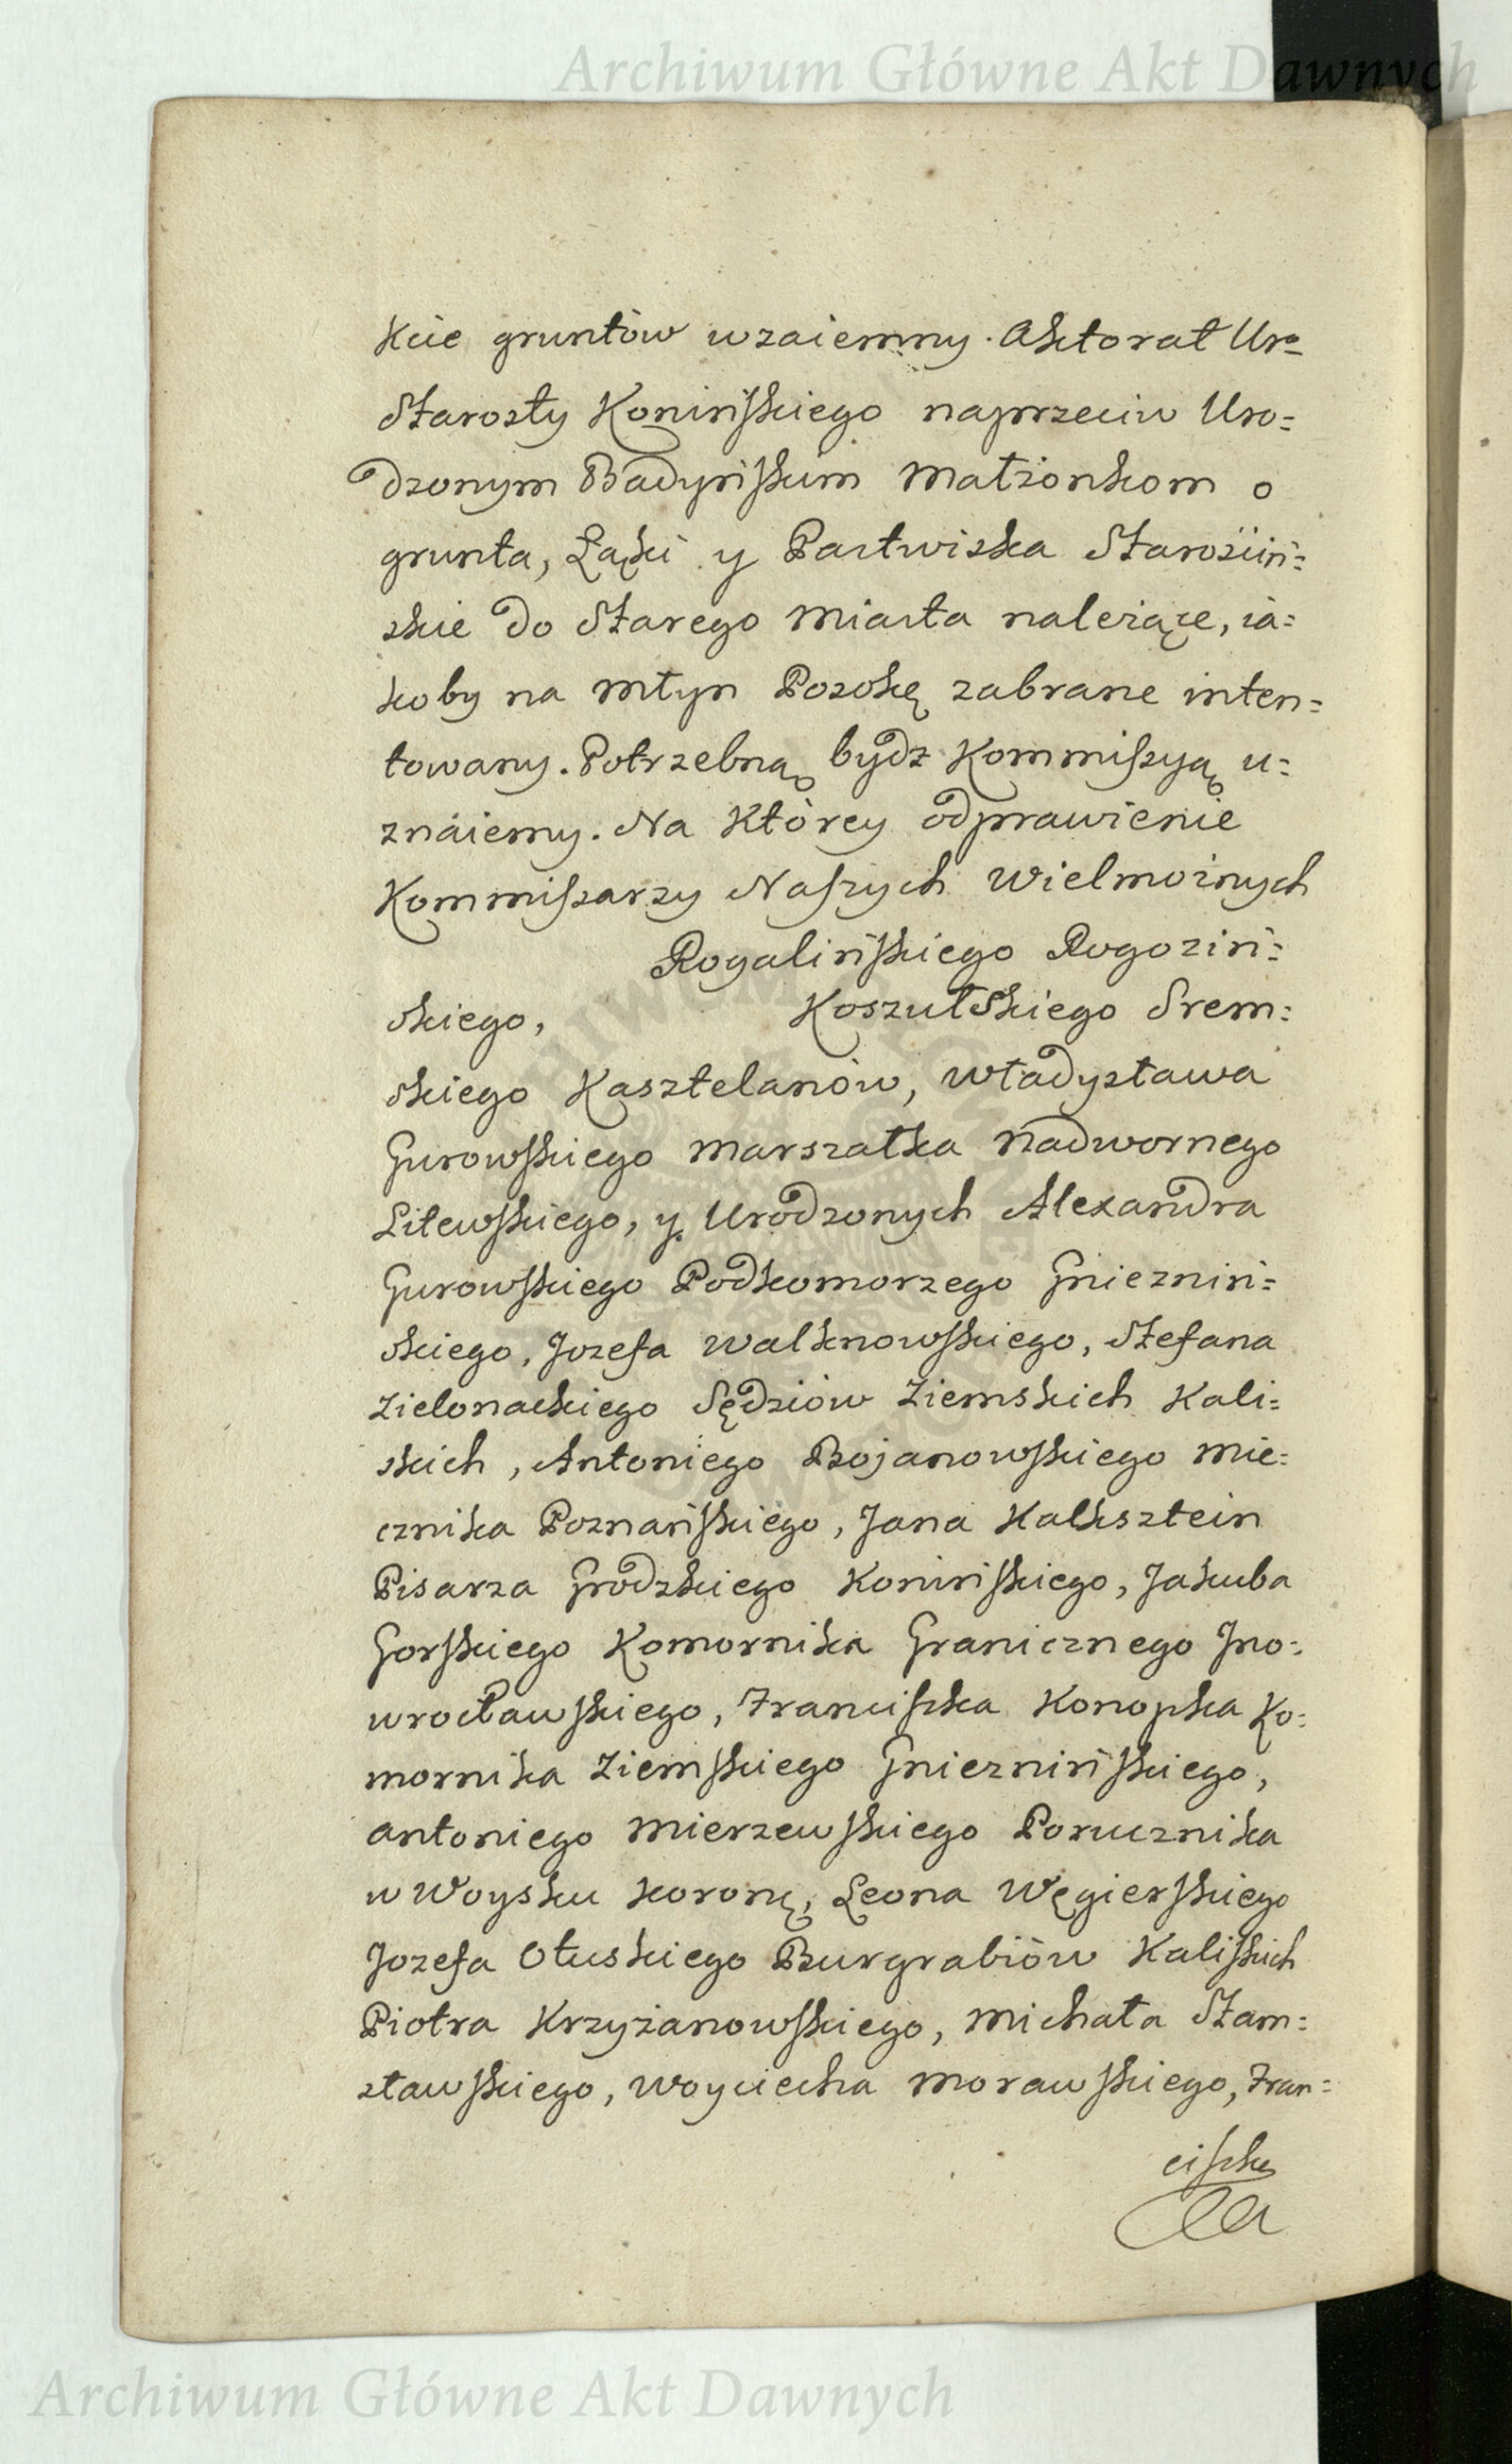 Archiwum Główne Akt Dawnych
kcie gruntów wzaiemny. Aktorat Uro
Starosty Konińskiego naprzeciw Uro=
dzonym Badyńskim Małżonkom o
grunta, Łąki y Pastwiska Starościń=
skie do Starego Miasta należące, ia=
koby na Młyn Posokę zabrane inten=
towany. Potrzebną bydz Kommissyą u=
znaiemy. Na Którey odprawienie
Kommissarzy Naszych Wielmożnych
Rogalińskiego Rogoziń=
skiego, Koszutskiego Srem=
skiego Kasztelanów, Władysława
Gurowskiego Marszałka Nadwornego
Litewskiego, y Urodzonych Alexandra
Gurowskiego Podkomorzego Gniezniń=
skiego, Jozefa Walknowskiego, Stefana
Zielonackiego Sędziów Ziemskich Kali=
skich, Antoniego Bojanowskiego Mie=
cznika Poznańskiego, Jana Kalksztein
Pisarza Grodzkiego Konińskiego, Jakuba
Gorskiego Komornika Granicznego Jno=
wrocławskiego, Franciszka Konopka Ko=
mornika Ziemskiego Gnieznińskiego,
Antoniego Mierzewskiego Porucznika
w Woysku koronę, Leona Węgierskiego
Jozefa Otuskiego Burgrabiów Kaliskich
Piotra Krzyżanowskiego, Michała Stam=
sławskiego, Woyciecha Morawskiego, Fran=
ciszka
Archiwum Główne Akt Dawnych